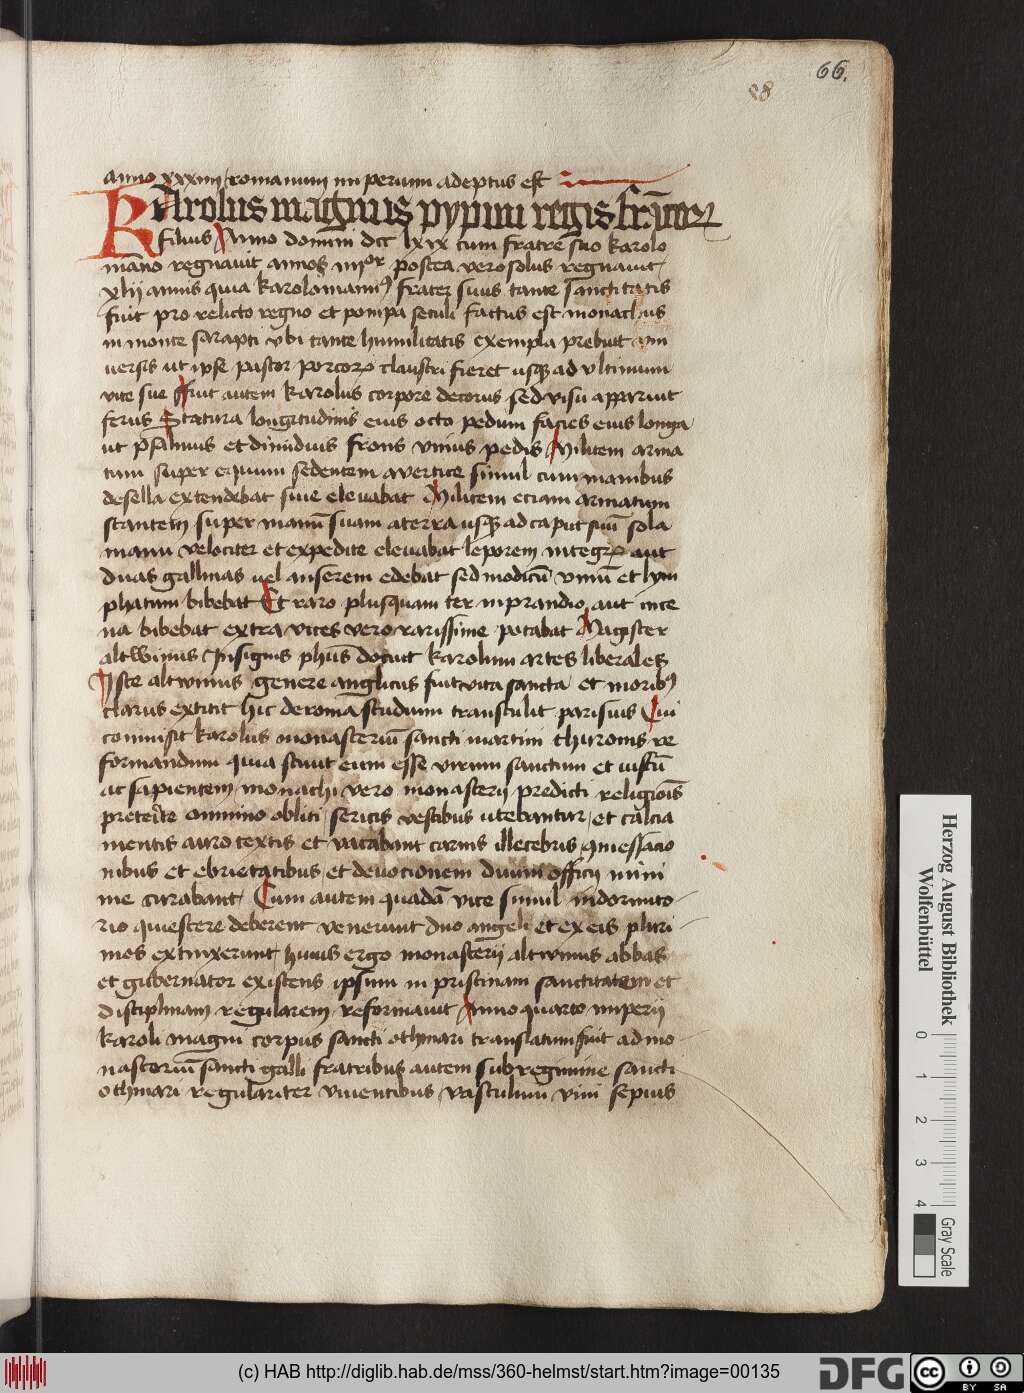 66.
88
anno xxxiiii romanum imperium adeptus est
Karolus magnus pypini regis francor
filius Anno domini dcc lxix cum fratre suo karolo
manno regnauit annos iiiior postea vero solus regnauit
xlij annis quia karolomannus frater suus tante sanctitatis
fuit pro relicto regno et pompa seculi factus est monachus
in monte sarapti vbi tante humilitatis exempla prebuit vni
uersis ut ipse pastor porcor claustri fieret usque ad vltimum
vite sue ffuit autem karolus corpore decorus sed visu apparuit
ferus Statura longitudinis eius octo pedum facies eius longa
ut palmus et dimidius frons vnius pedis Militem arma
tum super equum sedentem a vertice simul cum manibus
de sella extendebat siue eleuabat Militem eciam armatum
stantem super manū suam a terra usque ad caput suū sola
manu velociter et expedite eleuabat leporem integr aut
duas gallinas uel anserem edebat sed modicū vinū et lym
phatum bibebat Et raro plusquam ter in prandio aut in ce
na bibebat extra vices vero rarissime potabat Magister
altwinus Insignis phūs docuit karolum artes liberales
Iste altwinus genere anglicus fuit vita sancta et moribus
clarus extitit hic de roma studium transtulit parisius Cui
commisit karolus monasteriū sancti martini thuronis re
formandum quia sciuit eum esse virum sanctum et iustū
ac sapientem monachi vero monasterij predicti religiois
pretexte omnino obliti sericis vestibus utebantur et calcia
mentis auro textis et vacabant carnis illecebris quiessacio
nibus et ebrietatibus et deuocionem diuini officij mini
me curabant Cum autem quadā vice simul in dormito
rio quiescere deberent venerunt duo angeli et ex eis pluri
mos extinxerunt huius ergo monasterij altwinus abbas
et gubernator existens ipsum in pristinam sanctitatem et
disciplinam regularem reformauit Anno quarto imperij
karoli magni corpus sancti othmari translatum fuit ad mo
nasterium sancti galli fratribus autem sub regimine sancti
othmari regulariter viuentibus vasculum vini sepius
Herzog August Bibliothek
Wolfenbüttel
0 1 2 3 4
Gray Scale
(c) HAB http://diglib.hab.de/mss/360-helmst/start.htm?image=00135
DFG
cc BY SA